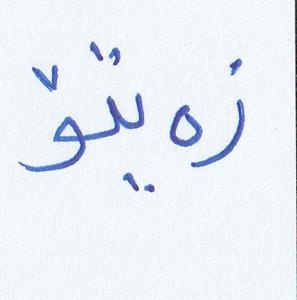 زەیتۆ